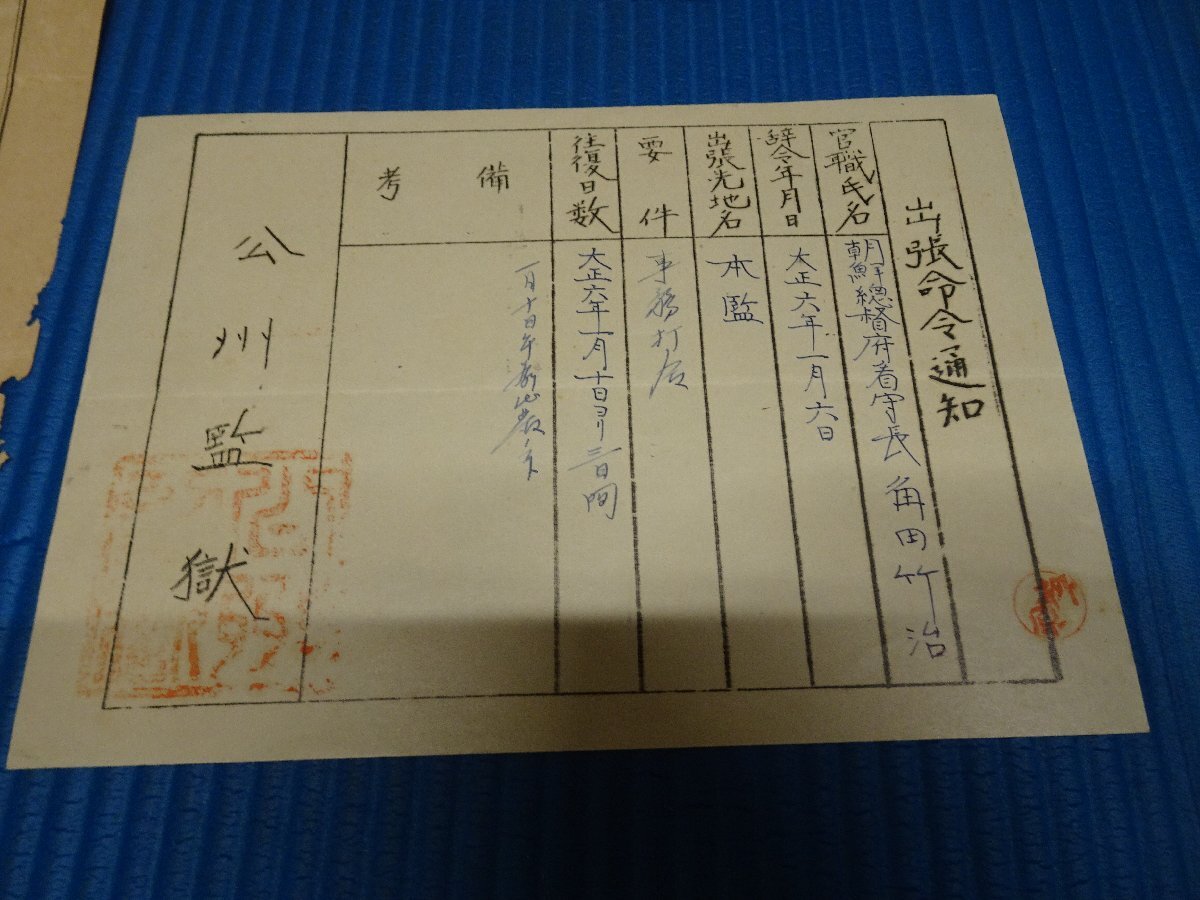 出張命令通知
官職氏名
朝鮮總督府看守長 角田竹治
辞令年月日
大正六年一月六日
出張先地名
本監
要件
事務打合
往復日数
大正六年一月十日ヨリ三日間
備考
一月十日午前
公州監獄